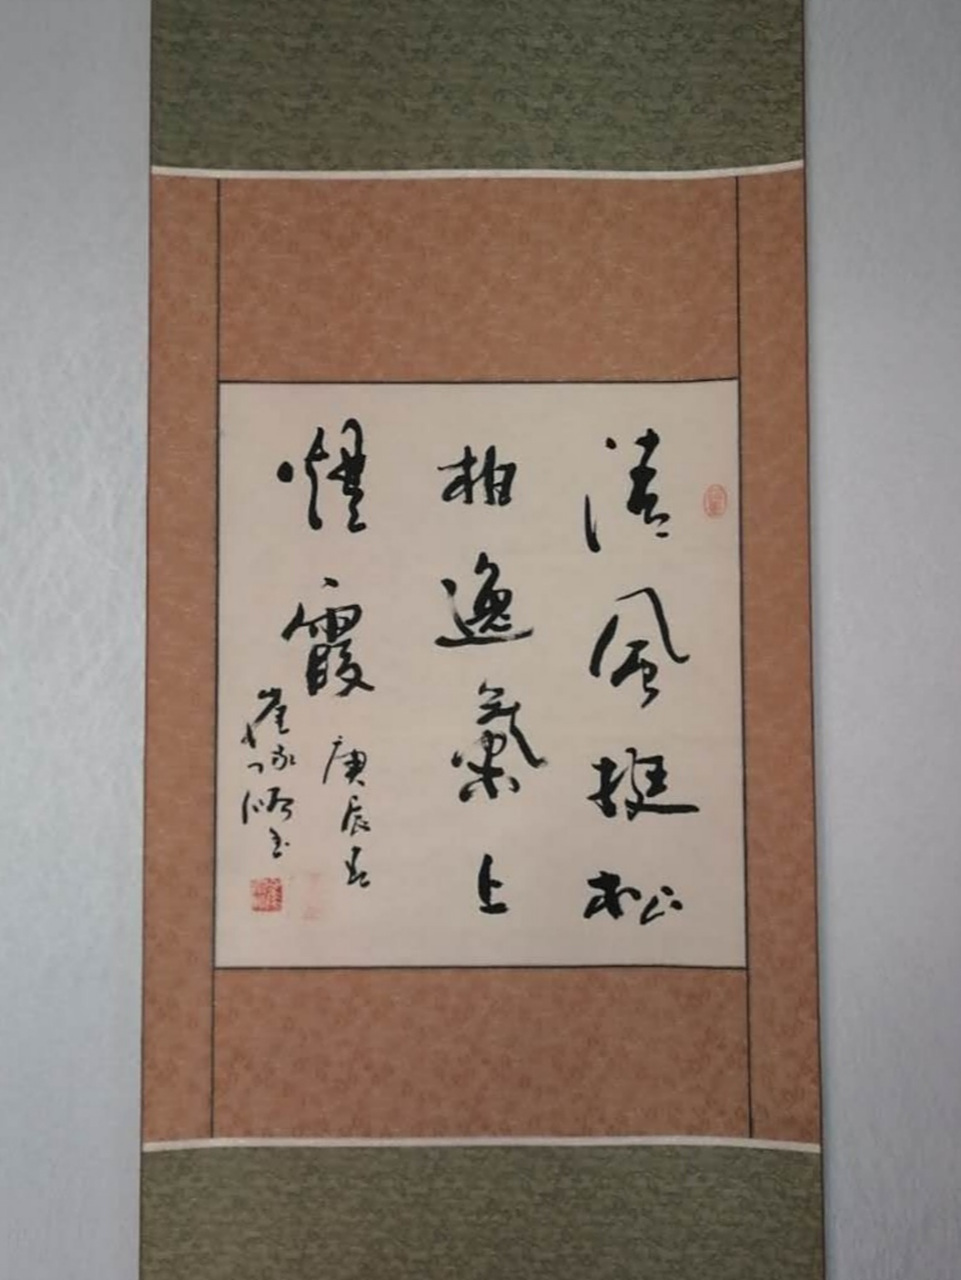 清風挺松
柏逸氣上
煙霞
庚辰
崔家順書